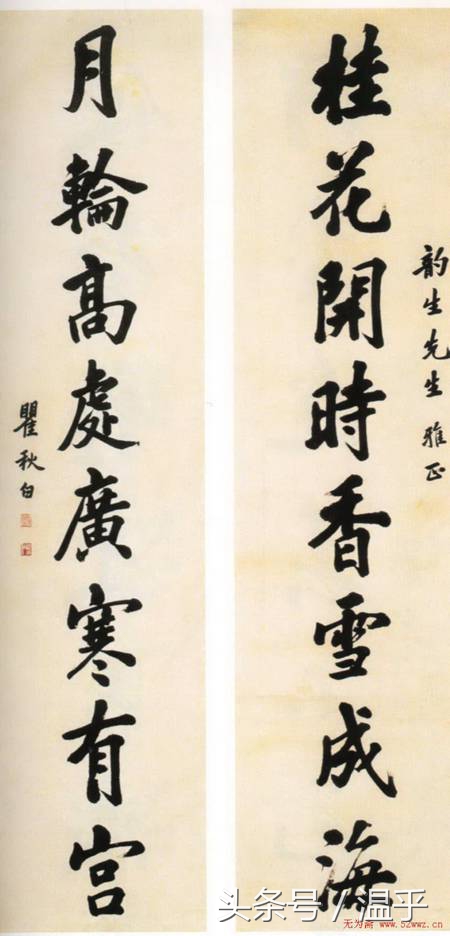 韵生先生雅正
桂花開時香雪成海
月輪高處廣寒有宮
瞿秋白
头条号/温乎
无为斋.52wwz.cn